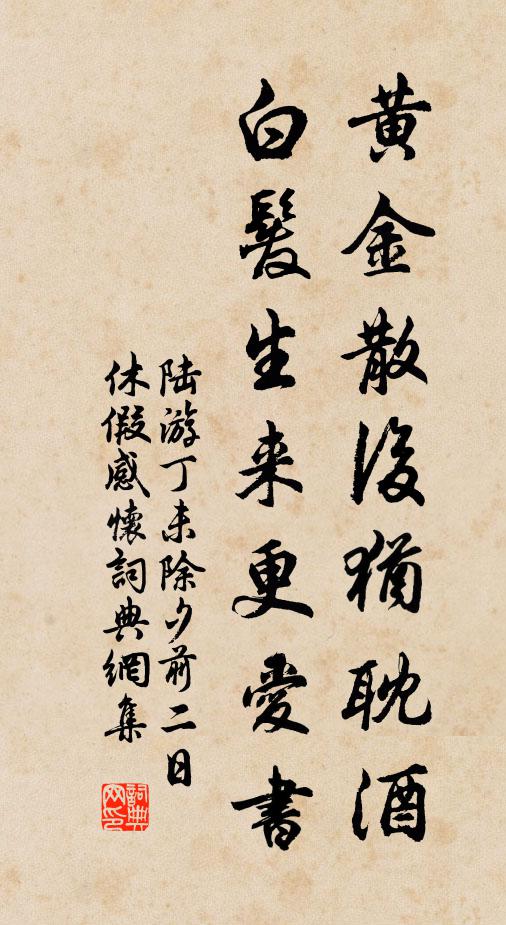 黄金散後猶耽酒
白髮生来更愛書
陆游丁未除夕前二日
休假感懷詞典網集
詞典
网印